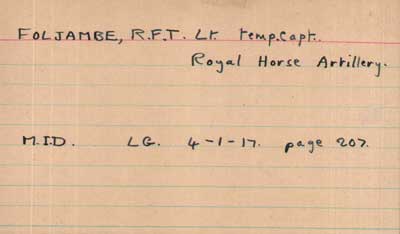 FOLJAMBE, R.F.T. Lt. temp.Capt.
Royal Horse Artillery.
M.I.D. LG. 4-1-17. page 207.